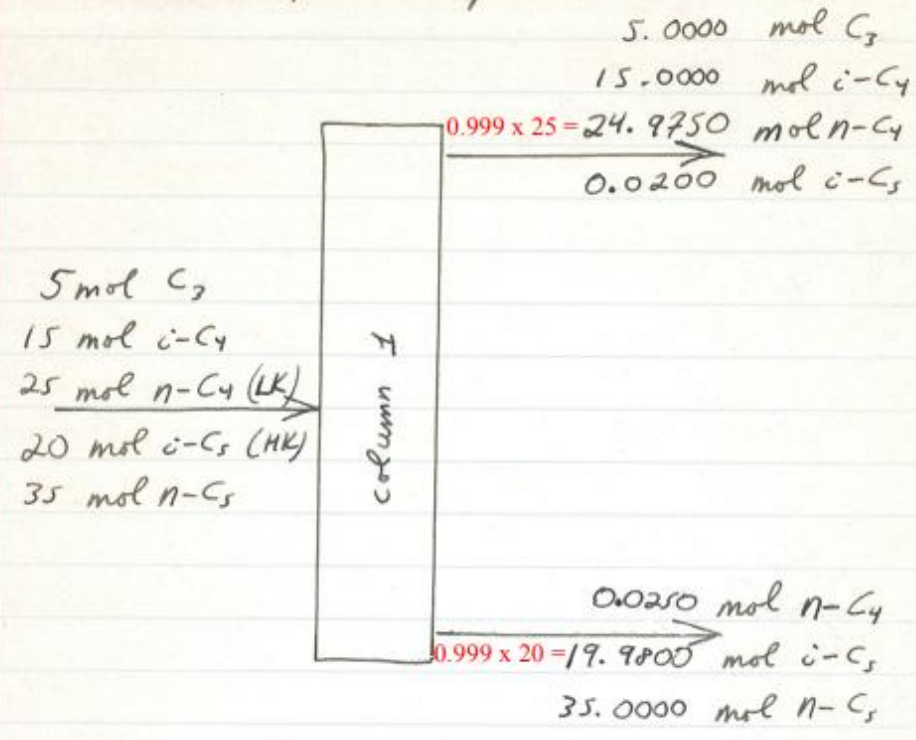 5.0000 mol C₃
15.0000 mol i-C₄
0.999 x 25 = 24.9750 mol n-C₄
0.0200 mol i-C₅
5 mol C₃
15 mol i-C₄
25 mol n-C₄ (LK)
20 mol i-C₅ (HK)
35 mol n-C₅
column 1
0.0250 mol n-C₄
0.999 x 20 = 19.9800 mol i-C₅
35.0000 mol n-C₅